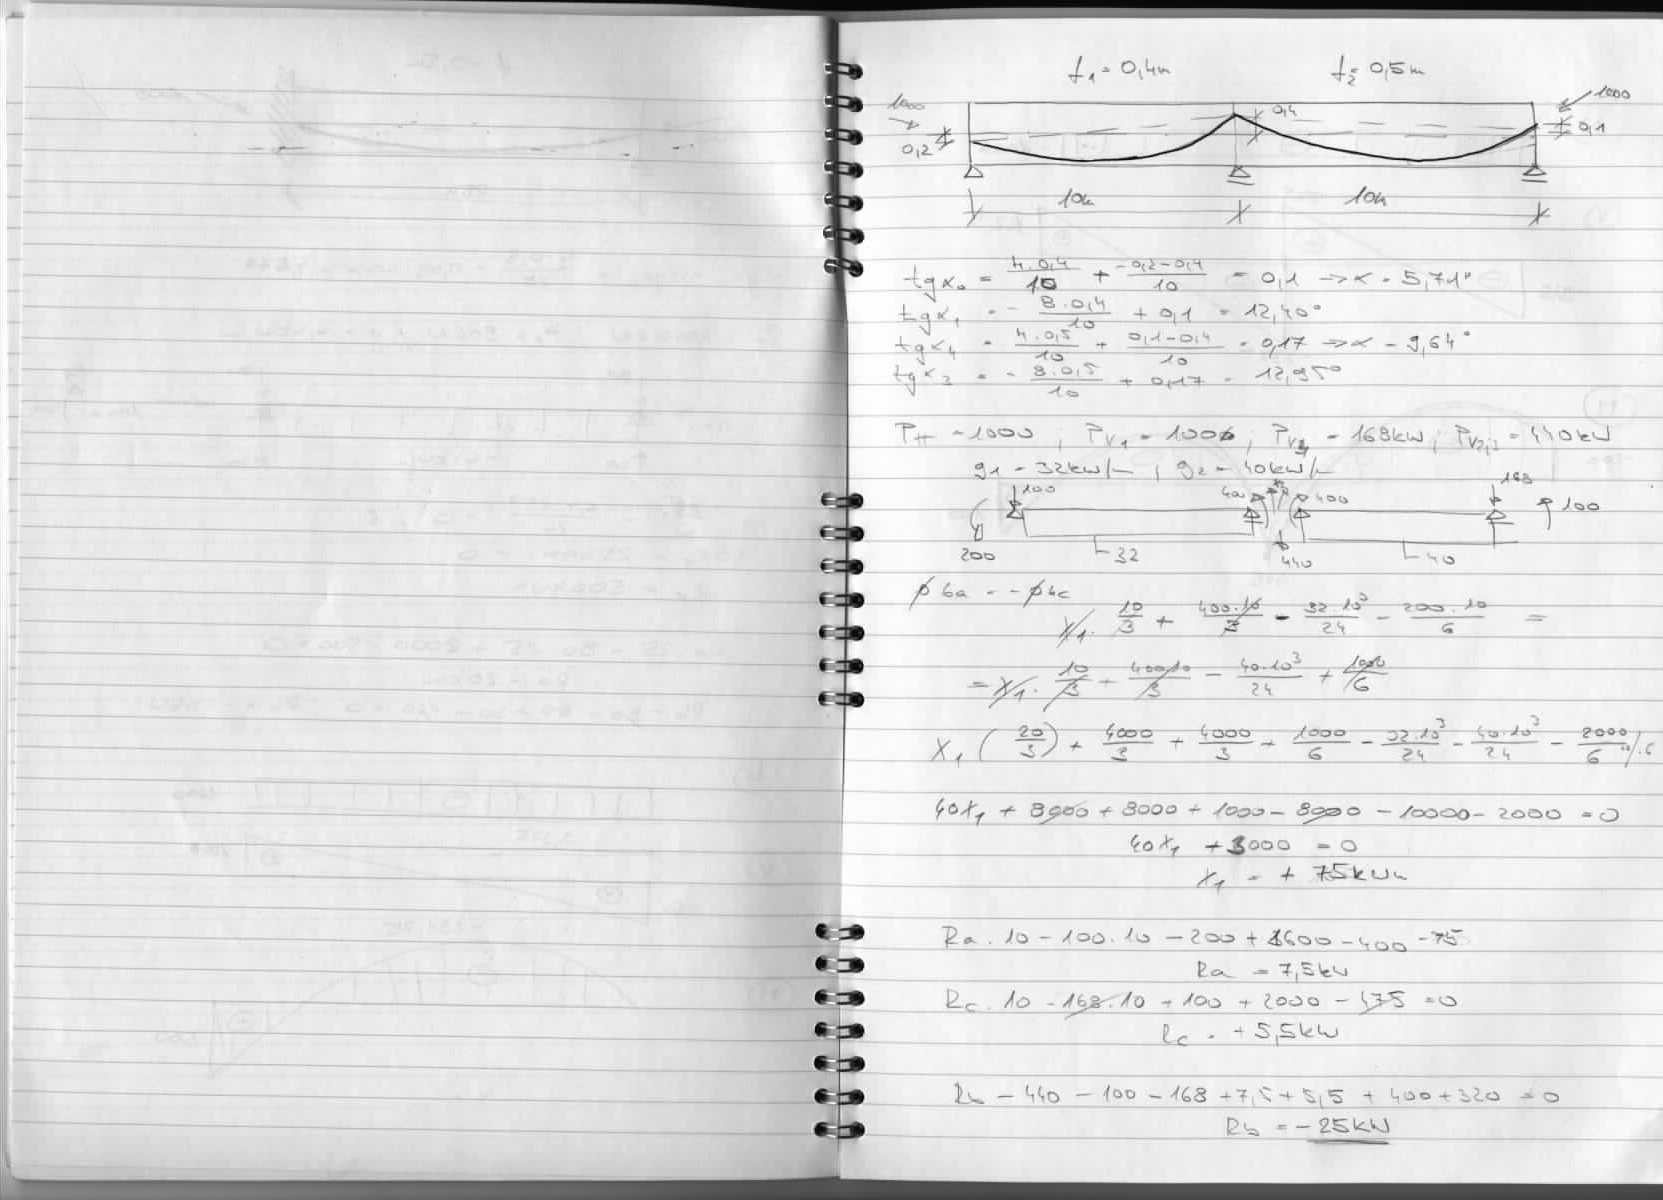 f₁ = 0,4m f₂ = 0,5m
1000 0,4 1000
0,2 0,1
10m 10m
tgα₀ = 4·0,4/10 + -0,2-0,4/10 = 0,1 → α = 5,71°
tgα₁ = - 8·0,4/10 + 0,1 = 12,40°
tgα₄ = 4·0,5/10 + 0,1-0,4/10 = 0,17 → α = 9,64°
tgα₃ = - 8·0,5/10 + 0,17 = 12,95°
P_H = 1000 ; P_V₁ = 100 ; P_V₃ = 168kN ; P_V₂,₂ = 440kN
g₁ = 32kN/m ; g₂ = 40kN/m
100 400 400 168 100
200 32 440 40
φba = -φbc
X₁ · 10/3 + 400·10/3 - 32·10³/24 - 200·10/6 =
= X₁ · 10/3 + 400·10/3 - 40·10³/24 + 1000/6
X₁ (20/3) + 4000/3 + 4000/3 + 1000/6 - 32·10³/24 - 40·10³/24 - 2000/6 /·6
40X₁ + 8000 + 8000 + 1000 - 8000 - 10000 - 2000 = 0
40X₁ + 3000 = 0
X₁ = + 75kNm
Ra · 10 - 100·10 - 200 + 1600 - 400 - 75
Ra = 7,5kN
Rc · 10 - 168·10 + 100 + 2000 - 475 = 0
Rc = +5,5kN
Rb - 440 - 100 - 168 + 7,5 + 5,5 + 400 + 320 = 0
Rb = -25kN